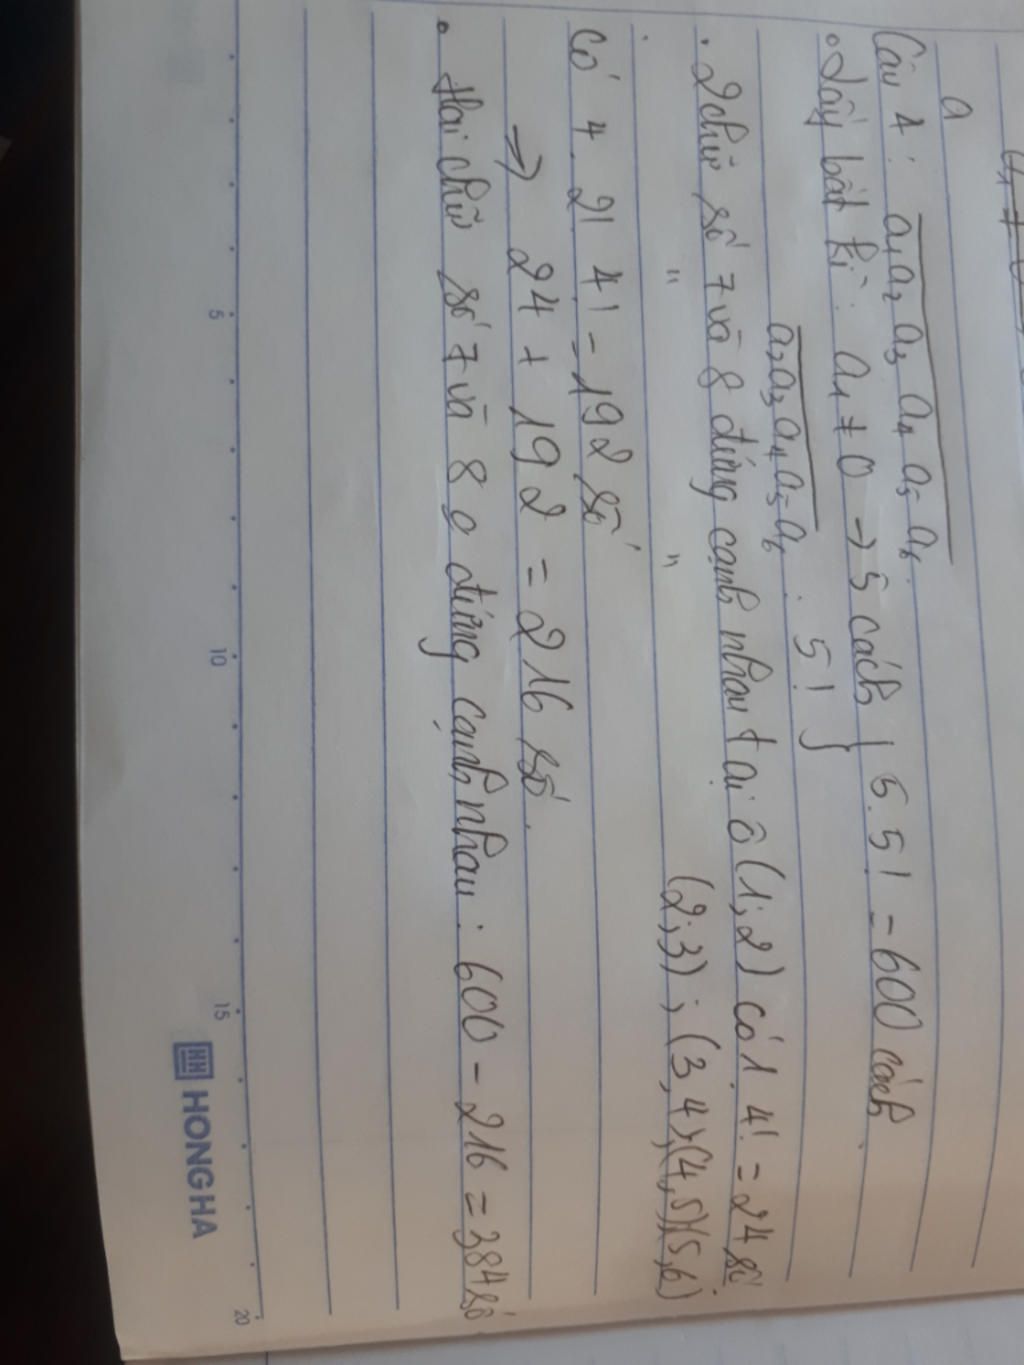 a
Câu 4: a₁a₂a₃a₄a₅a₆.
• Dãy bất kì: a₁ ≠ 0 → 5 cách } 5.5! = 600 cách.
a₂a₃a₄a₅a₆ . 5! }
• 2 chữ số 7 và 8 đứng cạnh nhau tại ô (1;2) có 1.4! = 24 số
" " (2;3); (3,4);(4,5);(5,6)
có 4.2!.4! = 192 số
→ 24 + 192 = 216 số.
• Hai chữ số 7 và 8 o đứng cạnh nhau: 600 - 216 = 384 số
5 10 15 20
HH HONG HA